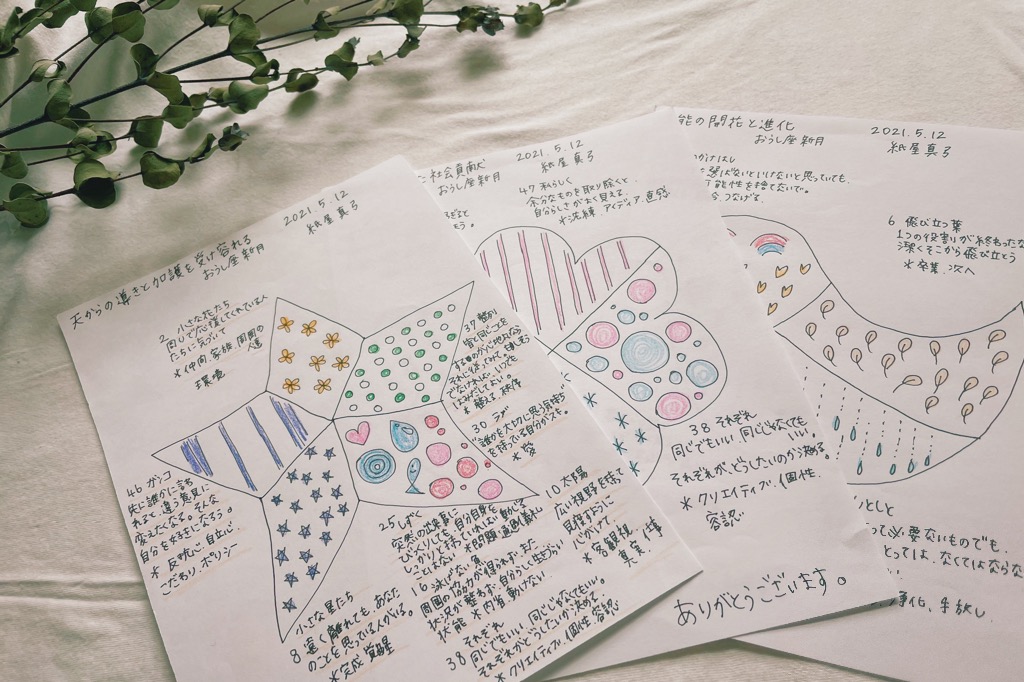 天からの導きと加護を受け容れる
おうし座新月
2021.5.12
紙屋真弓
2 小さな花たち
同じで応援してくれている人
たちに気づいて
*仲間 家族 周囲の
人達
環境
46 ガンコ
先に誰かに言ち
れると、違う意見に
変えたくなる。そんな
自分を好きになろう。
*反抗心、自立心
こだわり、ポリシー
小さな星たち
8 遠く離れても、あなた
のことを思っている人がいる。
*完成 覚醒
37 繋がり
30 ラブ
誰かを大切に思う気持ち
を持っている自分がステキ。
*愛
25 しずく
突然の出来事に
*問題、過剰、厳しい
16 泳げない魚
周囲の協力が得れず、また
状況が整わず、自分らしく生きづらい
状態 *内省 動けない
それぞれ
38 同じでもいい 同じじゃなくてもいい
それぞれがどうしたいか決めて
*クリエイティブ、個性、容認
10 太陽
広い視野を持って
見渡すように
心がけて
*客観視 仕事
真実
社会貢献
おうし座新月
2021.5.12
紙屋真弓
47 私らしく
余分なものを取り除くと、
自分らしさがよく見える。
*洗練、アイディア、直感
38 それぞれ
同じでもいい、同じじゃなくても
いい
それぞれが、どうしたいのか決める。
*クリエイティブ、個性、
容認
ありがとうございます。
能の開花と進化
おうし座新月
2021.5.12
紙屋真弓
に選ばないといけないと思っていても、
可能性を捨てないで。
つなげる。
6 飛び立つ葉
1つの役割りが終もったな
潔くそこから飛び立とう
*卒業、次へ
とっては、なくてはならな
って必要ないものでも、
浄化、手放し